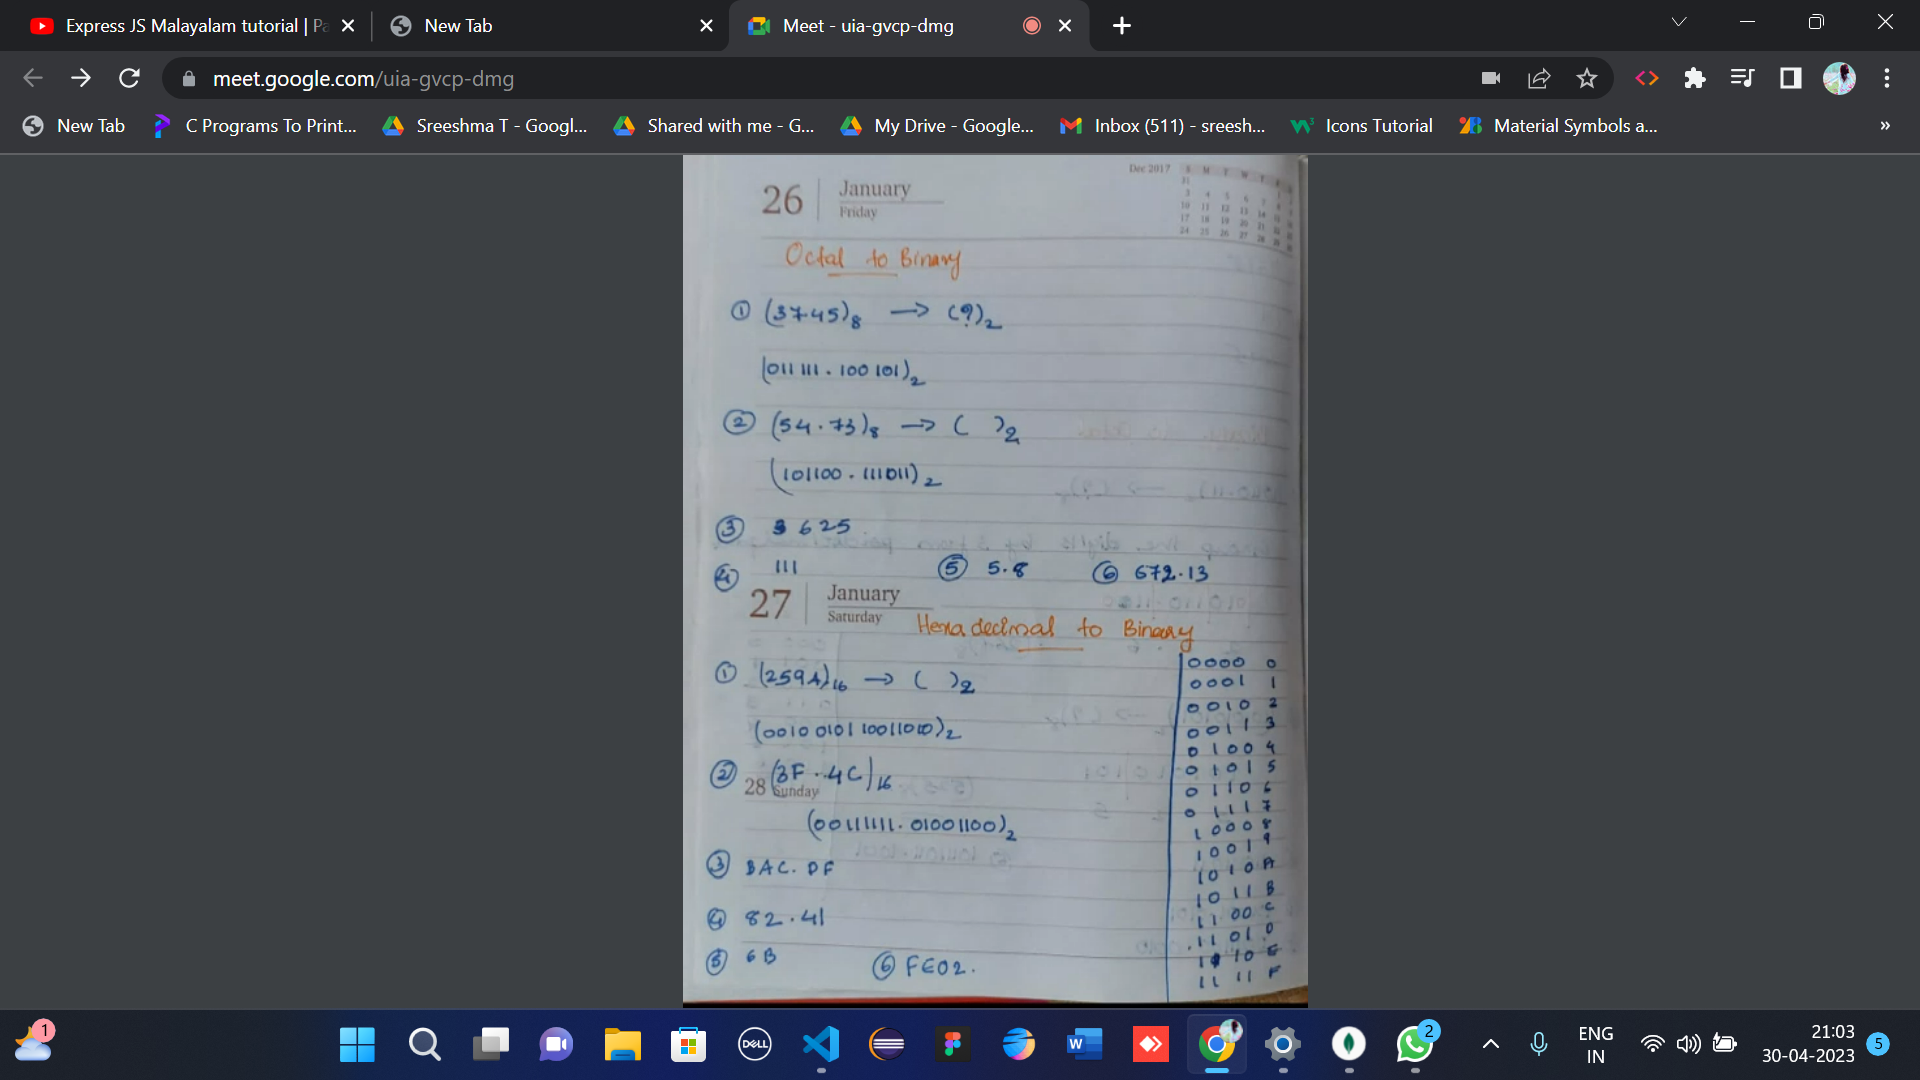 Express JS Malayalam tutorial | Pa
New Tab
Meet - uia-gvcp-dmg
meet.google.com/uia-gvcp-dmg
New Tab
C Programs To Print...
Sreeshma T - Googl...
Shared with me - G...
My Drive - Google...
Inbox (511) - sreesh...
Icons Tutorial
Material Symbols a...
»
26 January
Friday
Dec 2017
Octal to Binary
① (3745)8 → (?)2
(011 111 . 100 101)2
② (54.73)8 → ( )2
(101100 . 111011)2
③ 3625
④ 111 ⑤ 5.8 ⑥ 672.13
27 January
Saturday
Hexadecimal to Binary
① (259A)16 → ( )2
(0010 0101 10011010)2
② (3F.4C)16
28 Sunday
(00111111.01001100)2
③ BAC.DF
④ 82.41
⑤ 6B ⑥ FE02.
0000 0
0001 1
0010 2
0011 3
0100 4
0101 5
0110 6
0111 7
1000 8
1001 9
1010 A
1011 B
1100 C
1101 D
1110 E
1111 F
1
DELL
W
2
ENG
IN
21:03
30-04-2023
5